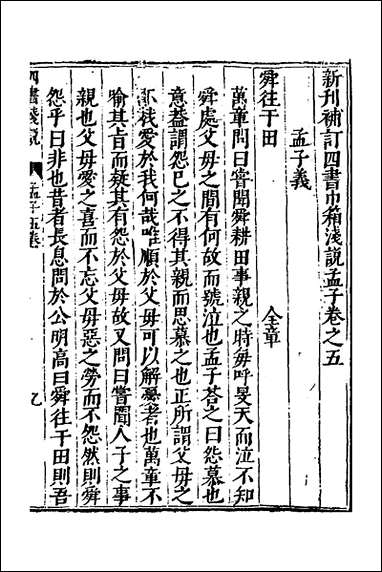 新刊補訂四書巾箱淺說孟子卷之五
孟子義
舜往于田 全章
萬章問曰嘗聞舜耕田事親之時每呼旻天而泣不知
舜處父母之間有何故而號泣也孟子荅之曰怨慕也
意葢謂怨己之不得其親而思慕之也正所謂父母之
不我愛於我何哉唯順於父母可以解憂者也萬章不
喻其旨而疑其有怨於父母故又問曰嘗聞人子之事
親也父母愛之喜而不忘父母惡之勞而不怨然則舜
怨乎曰非也昔者長息問於公明高曰舜往于田則吾
四書淺說 孟子五卷 乙